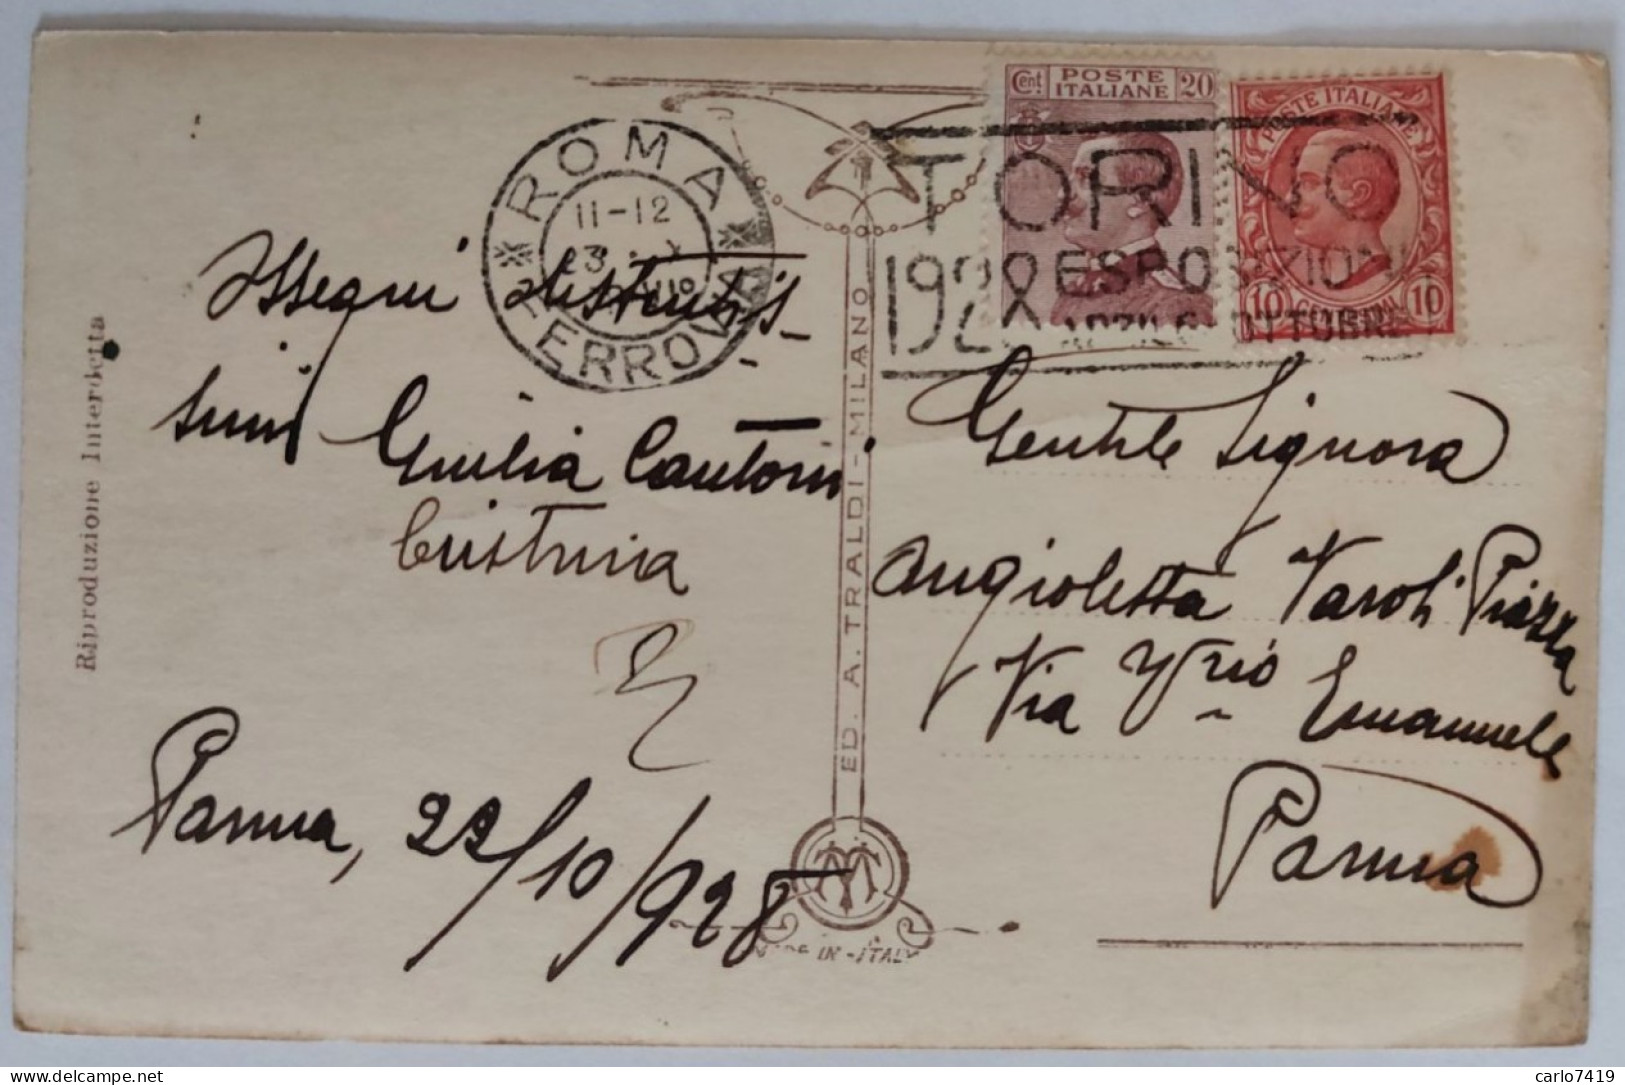 Riproduzione Interdetta
ROMA
11-12
23
FERROVIA
Cent. POSTE ITALIANE 20
POSTE ITALIANE
10 CENTESIMI 10
TORINO
1928 ESPOSIZIONI
APRILE OTTOBRE
Ossequi distintis-
simi
Giulia Cantoni
Cristina
Parma, 22/10/928
ED. A. TRALDI - MILANO
MADE IN - ITALY
Gentile Signora
Angioletta Varoli Piazza
Via Vrio Emanuele
Parma
carlo7419